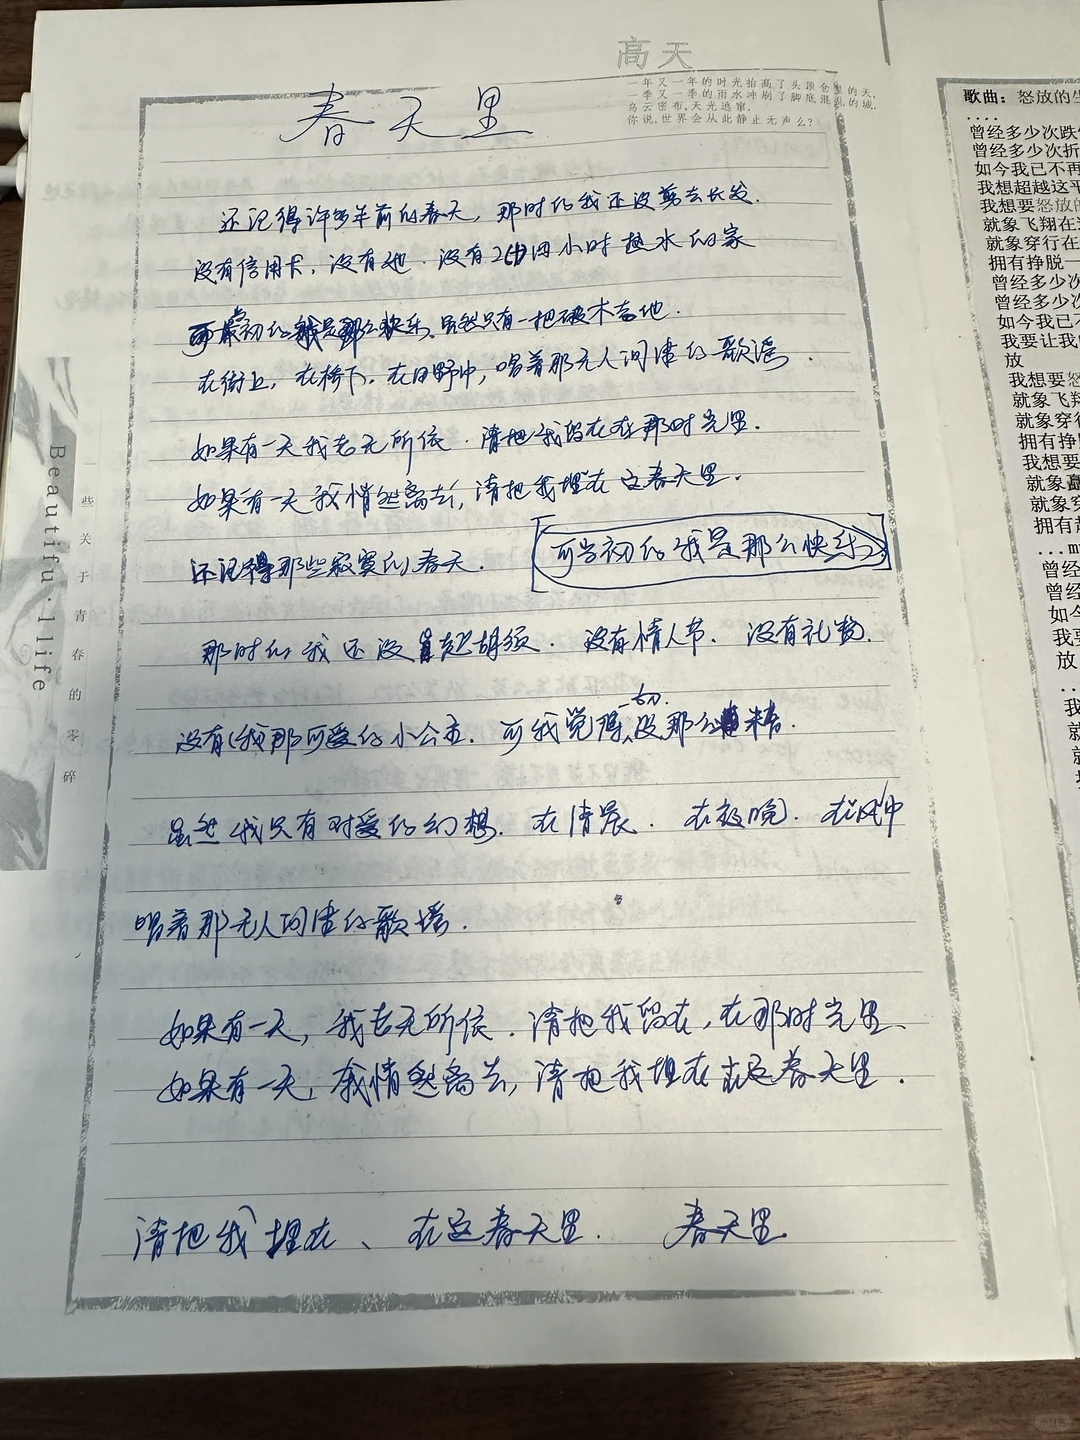 高天
一年又一年的时光抬高了头顶仓皇的天,
一季又一季的雨水冲刷了脚底混乱的城.
乌云密布,天光逃窜.
你说,世界会从此静止无声么?
春天里
还记得许多年前的春天，那时的我还没剪去长发.
没有信用卡，没有她．没有24小时热水的家
可当初的我是那么快乐、虽然只有一把破木吉他.
在街上，在桥下．在田野中，唱着那无人问津的歌谣．
如果有一天我老无所依．请把我留在在那时光里.
如果有一天我悄然离去，请把我埋在 这春天里.
还记得那些寂寞的春天．
可当初的我是那么快乐.
那时的我还没冒起胡须．没有情人节．没有礼物.
没有我那可爱的小公主．可我觉得一切没那么糟.
虽然我只有对爱的幻想．在清晨．在夜晚．在风中
唱着那无人问津的歌谣.
如果有一天，我老无所依．请把我留在，在那时光里、
如果有一天，我悄然离去，请把我埋在 在这春天里．
请把我埋在、在这春天里．春天里.
Beautifu·lllife
一些关于青春的零碎
歌曲：怒放的生
....
曾经多少次跌
曾经多少次折
如今我已不再
我想超越这平
我想要怒放的
就象飞翔在
就象穿行在
拥有挣脱一
曾经多少次
曾经多少次
如今我已不
我要让我
放
我想要怒
就象飞翔
就象穿行
拥有挣
我想要
就象
就象穿
拥有
...m
曾经
曾经
如今
我要
放
..
我
就
就